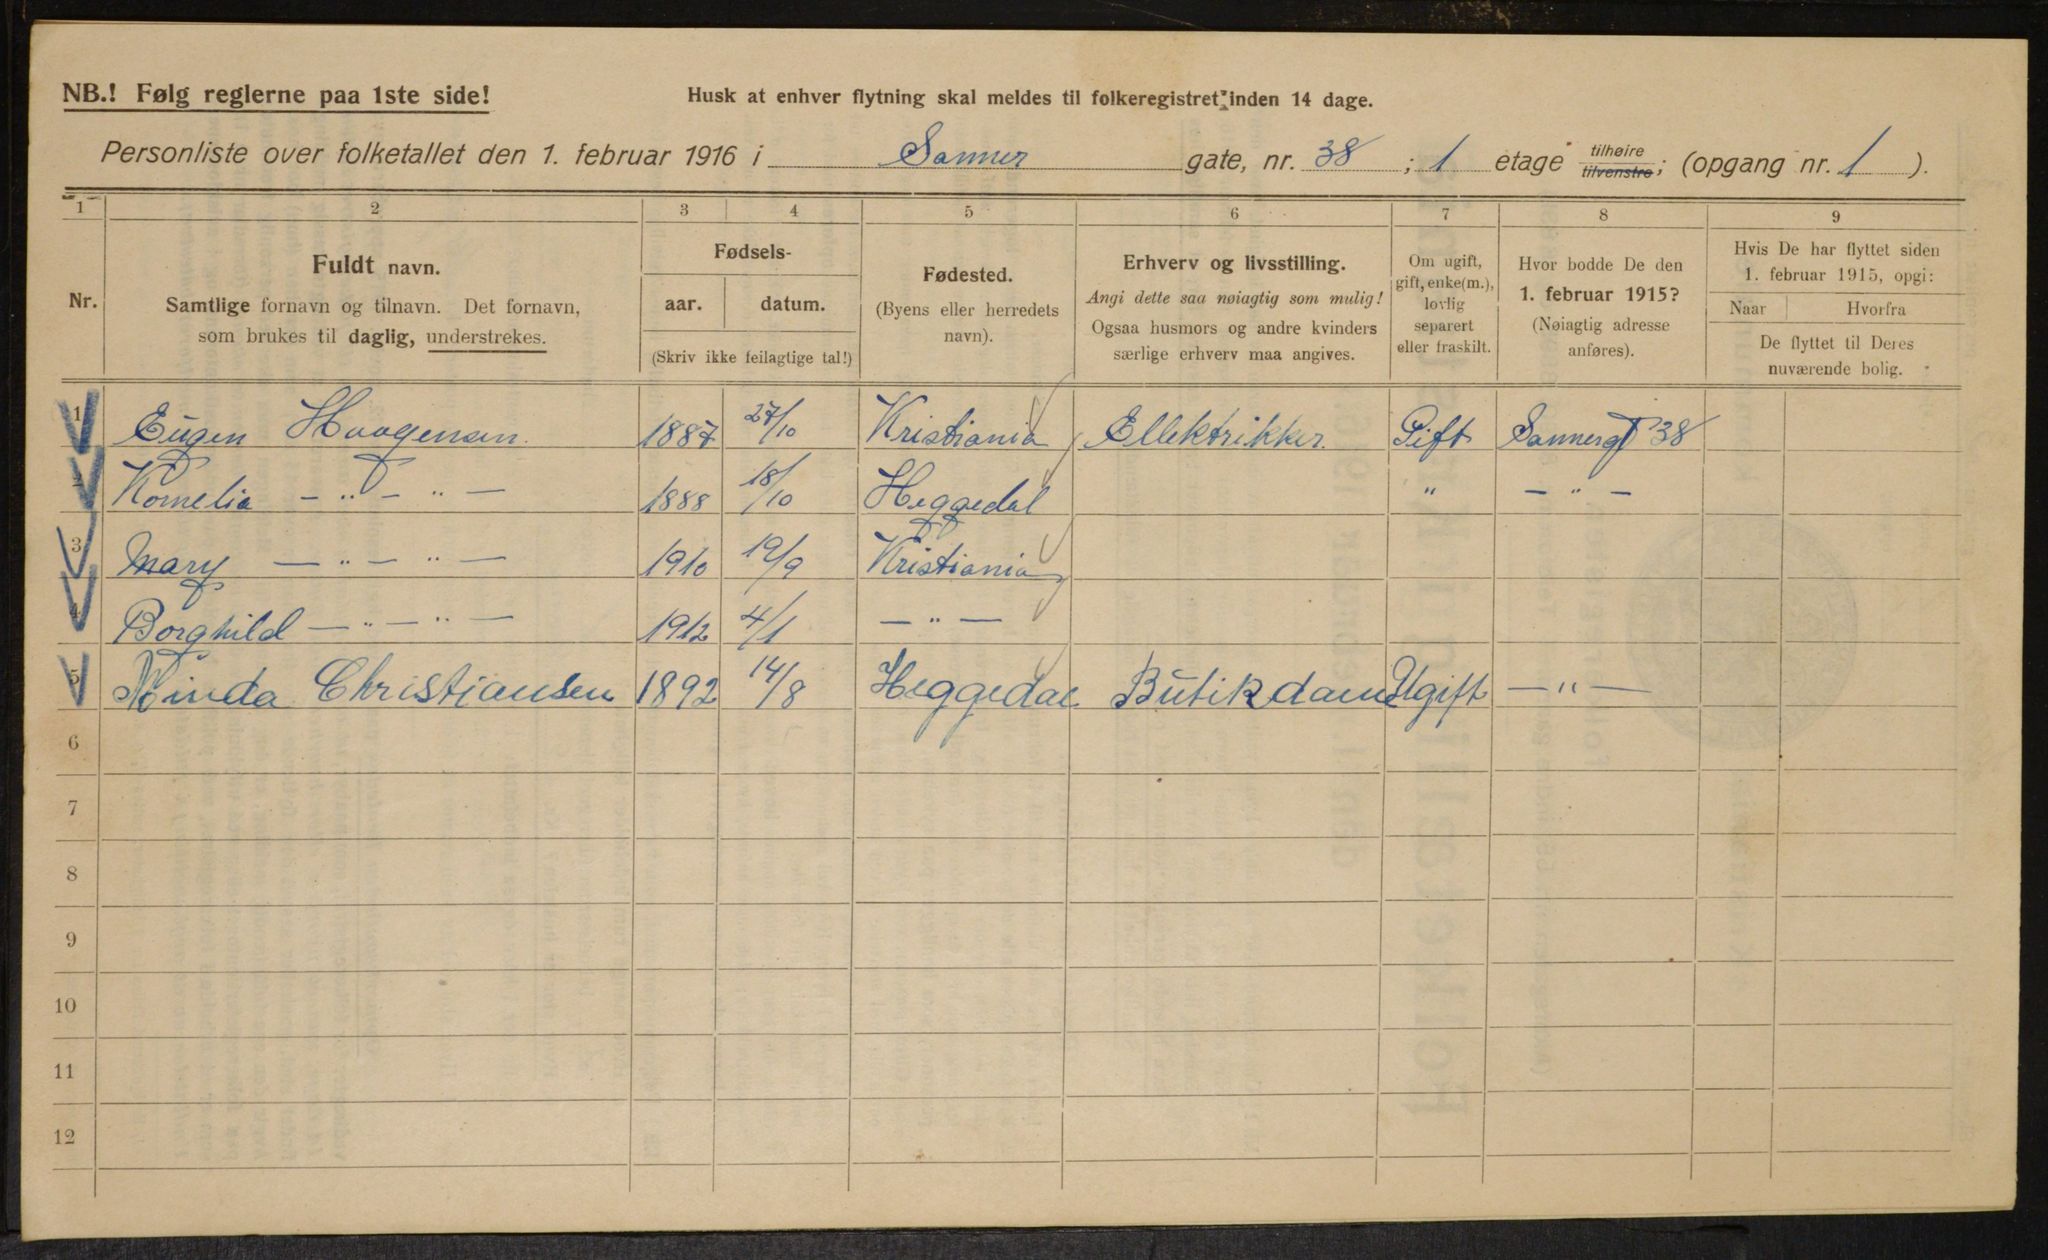 NB.! Følg reglerne paa 1ste side!
Husk at enhver flytning skal meldes til folkeregistret inden 14 dage.
Personliste over folketallet den 1. februar 1916 i Sanner gate, nr. 38 ; 1 etage tilhøire tilvenstre; (opgang nr. 1 ).
1 2 3 4 5 6 7 8 9
Nr.
Fuldt navn.
Samtlige fornavn og tilnavn. Det fornavn,
som brukes til daglig, understrekes.
Fødsels-
aar. datum.
(Skriv ikke feilagtige tal!)
Fødested.
(Byens eller herredets
navn).
Erhverv og livsstilling.
Angi dette saa nøiagtig som mulig!
Ogsaa husmors og andre kvinders
særlige erhverv maa angives.
Om ugift,
gift, enke(m.),
lovlig
separert
eller fraskilt.
Hvor bodde De den
1. februar 1915?
(Nøiagtig adresse
anføres).
Hvis De har flyttet siden
1. februar 1915, opgi:
Naar Hvorfra
De flyttet til Deres
nuværende bolig.
1 Eugen Haagensen. 1887 27/10 Kristiania Ellektrikker. Gift Sannergt 38
2 Kornelia — " — " — 1888 18/10 Heggedal " — " —
3 Mary — " — " — 1910 19/9 Kristiania
4 Borghild — " — " — 1912 4/1 — " —
5 Minda Christiansen 1892 14/8 Heggedal Butikdame Ugift — " —
6
7
8
9
10
11
12